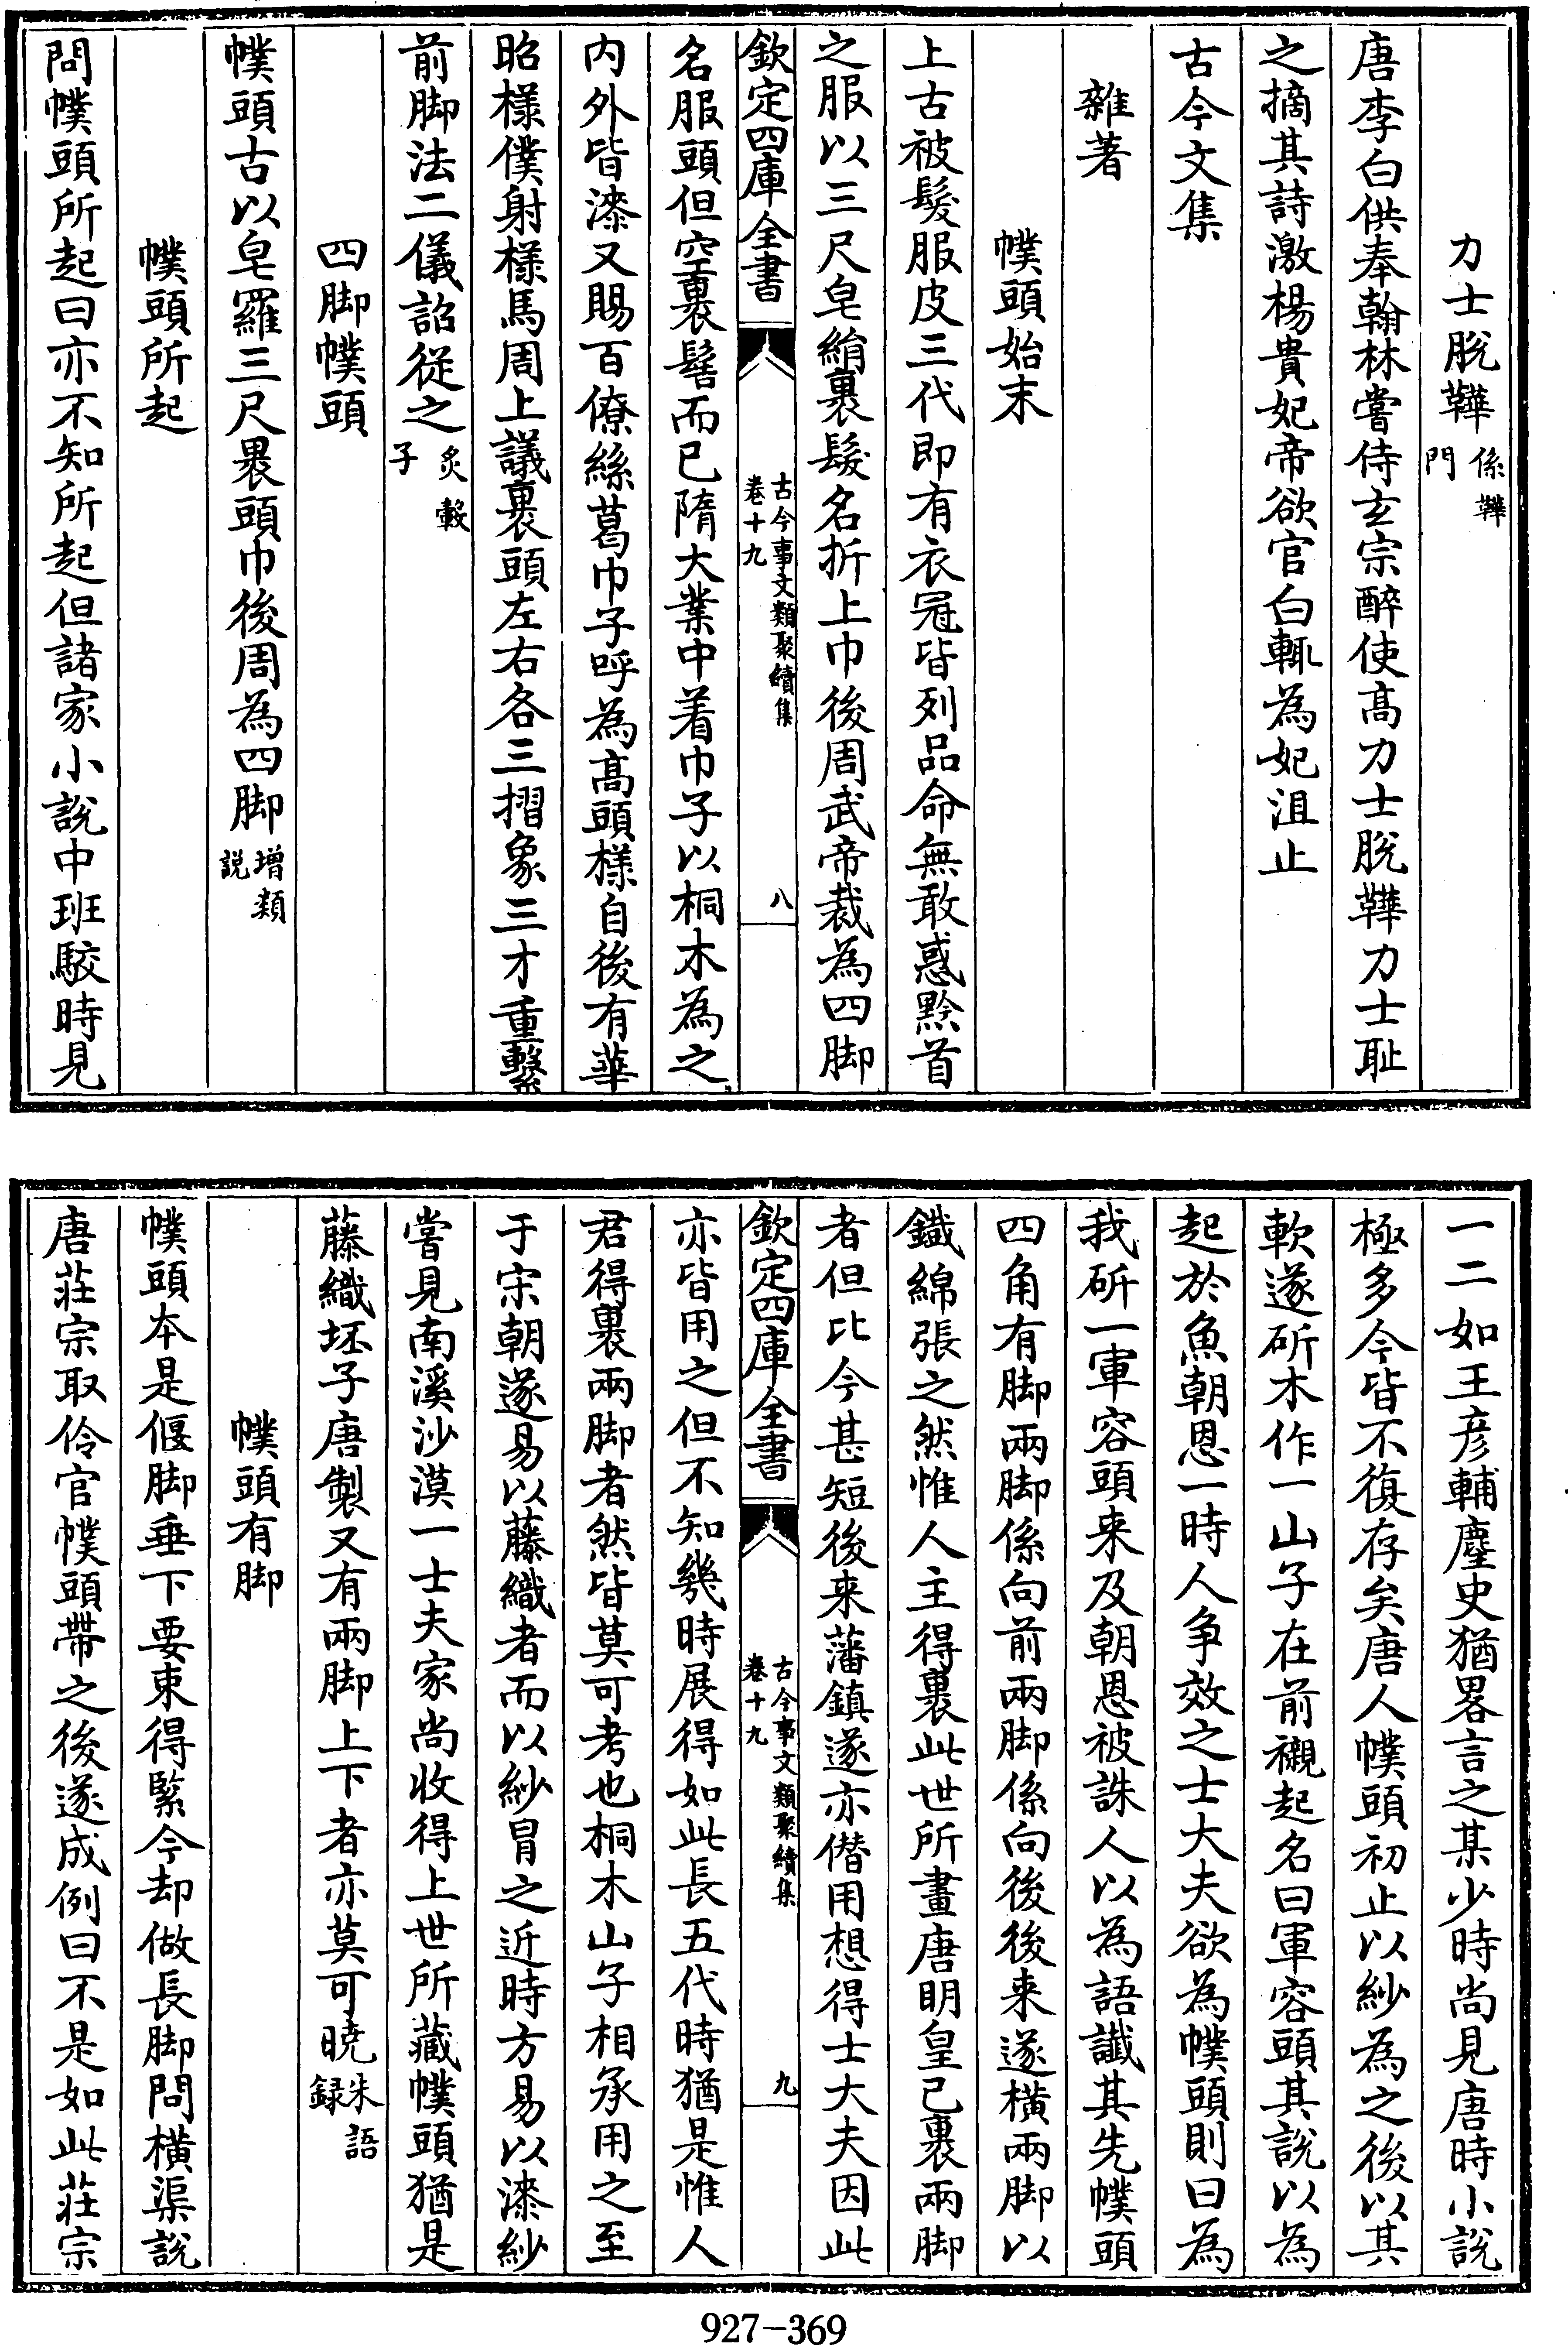 力士脫鞾係鞾門
唐李白供奉翰林嘗侍玄宗醉使髙力士脫鞾力士耻
之摘其詩激楊貴妃帝欲官白輒為妃沮止
古今文集
雜著
幞頭始末
上古被髮服皮三代即有衣冠皆列品命無敢惑黔首
之服以三尺皂絹裹髮名折上巾後周武帝裁為四脚
欽定四庫全書
古今事文類聚續集
卷十九
八
名服頭但空裹髻而已隋大業中着巾子以桐木為之
内外皆漆又賜百僚絲葛巾子呼為髙頭様自後有華
昭様僕射様馬周上議裹頭左右各三摺象三才重繫
前脚法二儀詔從之炙轂子
四脚幞頭
幞頭古以皂羅三尺裹頭巾後周為四脚增類説
幞頭所起
問幞頭所起曰亦不知所起但諸家小說中班駮時見
一二如王彦輔麈史猶畧言之某少時尚見唐時小說
極多今皆不復存矣唐人幞頭初止以紗為之後以其
軟遂斫木作一山子在前襯起名曰軍容頭其說以為
起於魚朝恩一時人争效之士大夫欲為幞頭則曰為
我斫一軍容頭来及朝恩被誅人以為語讖其先幞頭
四角有脚兩脚係向前兩脚係向後後来遂横兩脚以
鐵綿張之然惟人主得裹此世所畫唐明皇已裹兩脚
者但比今甚短後来藩鎮遂亦僣用想得士大夫因此
欽定四庫全書
古今事文類聚續集
卷十九
九
亦皆用之但不知幾時展得如此長五代時猶是惟人
君得裹兩脚者然皆莫可考也桐木山子相承用之至
于宋朝遂易以藤織者而以紗冒之近時方易以漆紗
嘗見南溪沙漠一士夫家尚收得上世所藏幞頭猶是
藤織坯子唐製又有兩脚上下者亦莫可曉朱語録
幞頭有脚
幞頭本是偃脚垂下要束得緊今却做長脚問横渠說
唐莊宗取伶官幞頭帶之後遂成例曰不是如此莊宗
927-369